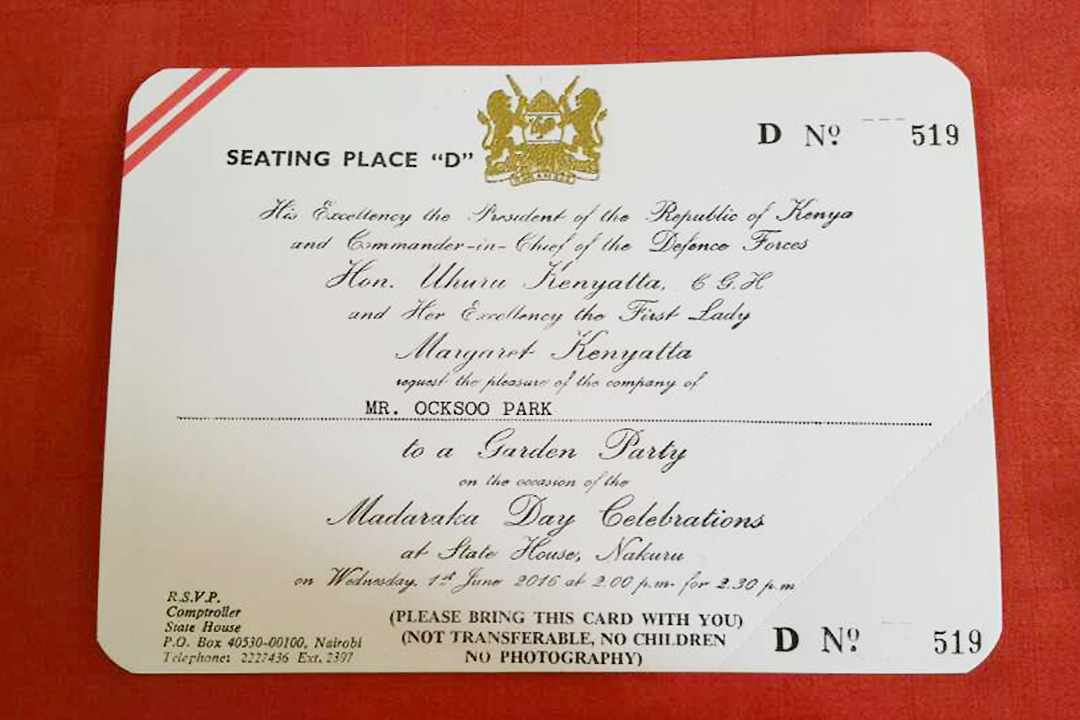 SEATING PLACE “D”
D Nº 519
His Excellency the President of the Republic of Kenya
and Commander-in-Chief of the Defence Forces
Hon. Uhuru Kenyatta, C G.H
and Her Excellency the First Lady
Margaret Kenyatta
request the pleasure of the company of
MR. OCKSOO PARK
to a Garden Party
on the occasion of the
Madaraka Day Celebrations
at State House, Nakuru
on Wednesday, 1st June 2016 at 2.00 p.m. for 2.30 p.m
R.S.V.P.
Comptroller
State House
P.O. Box 40530-00100, Nairobi
Telephone: 2227436 Ext. 2397
(PLEASE BRING THIS CARD WITH YOU)
(NOT TRANSFERABLE, NO CHILDREN
NO PHOTOGRAPHY)
D Nº 519